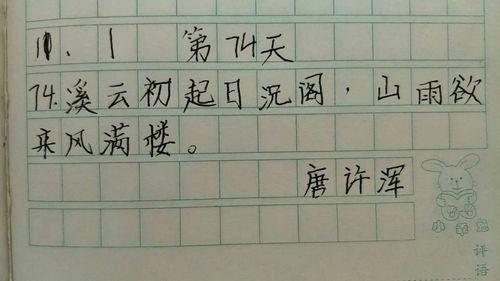 11.1 第74天
74.溪云初起日沉阁，山雨欲
来风满楼。
唐许浑
评语